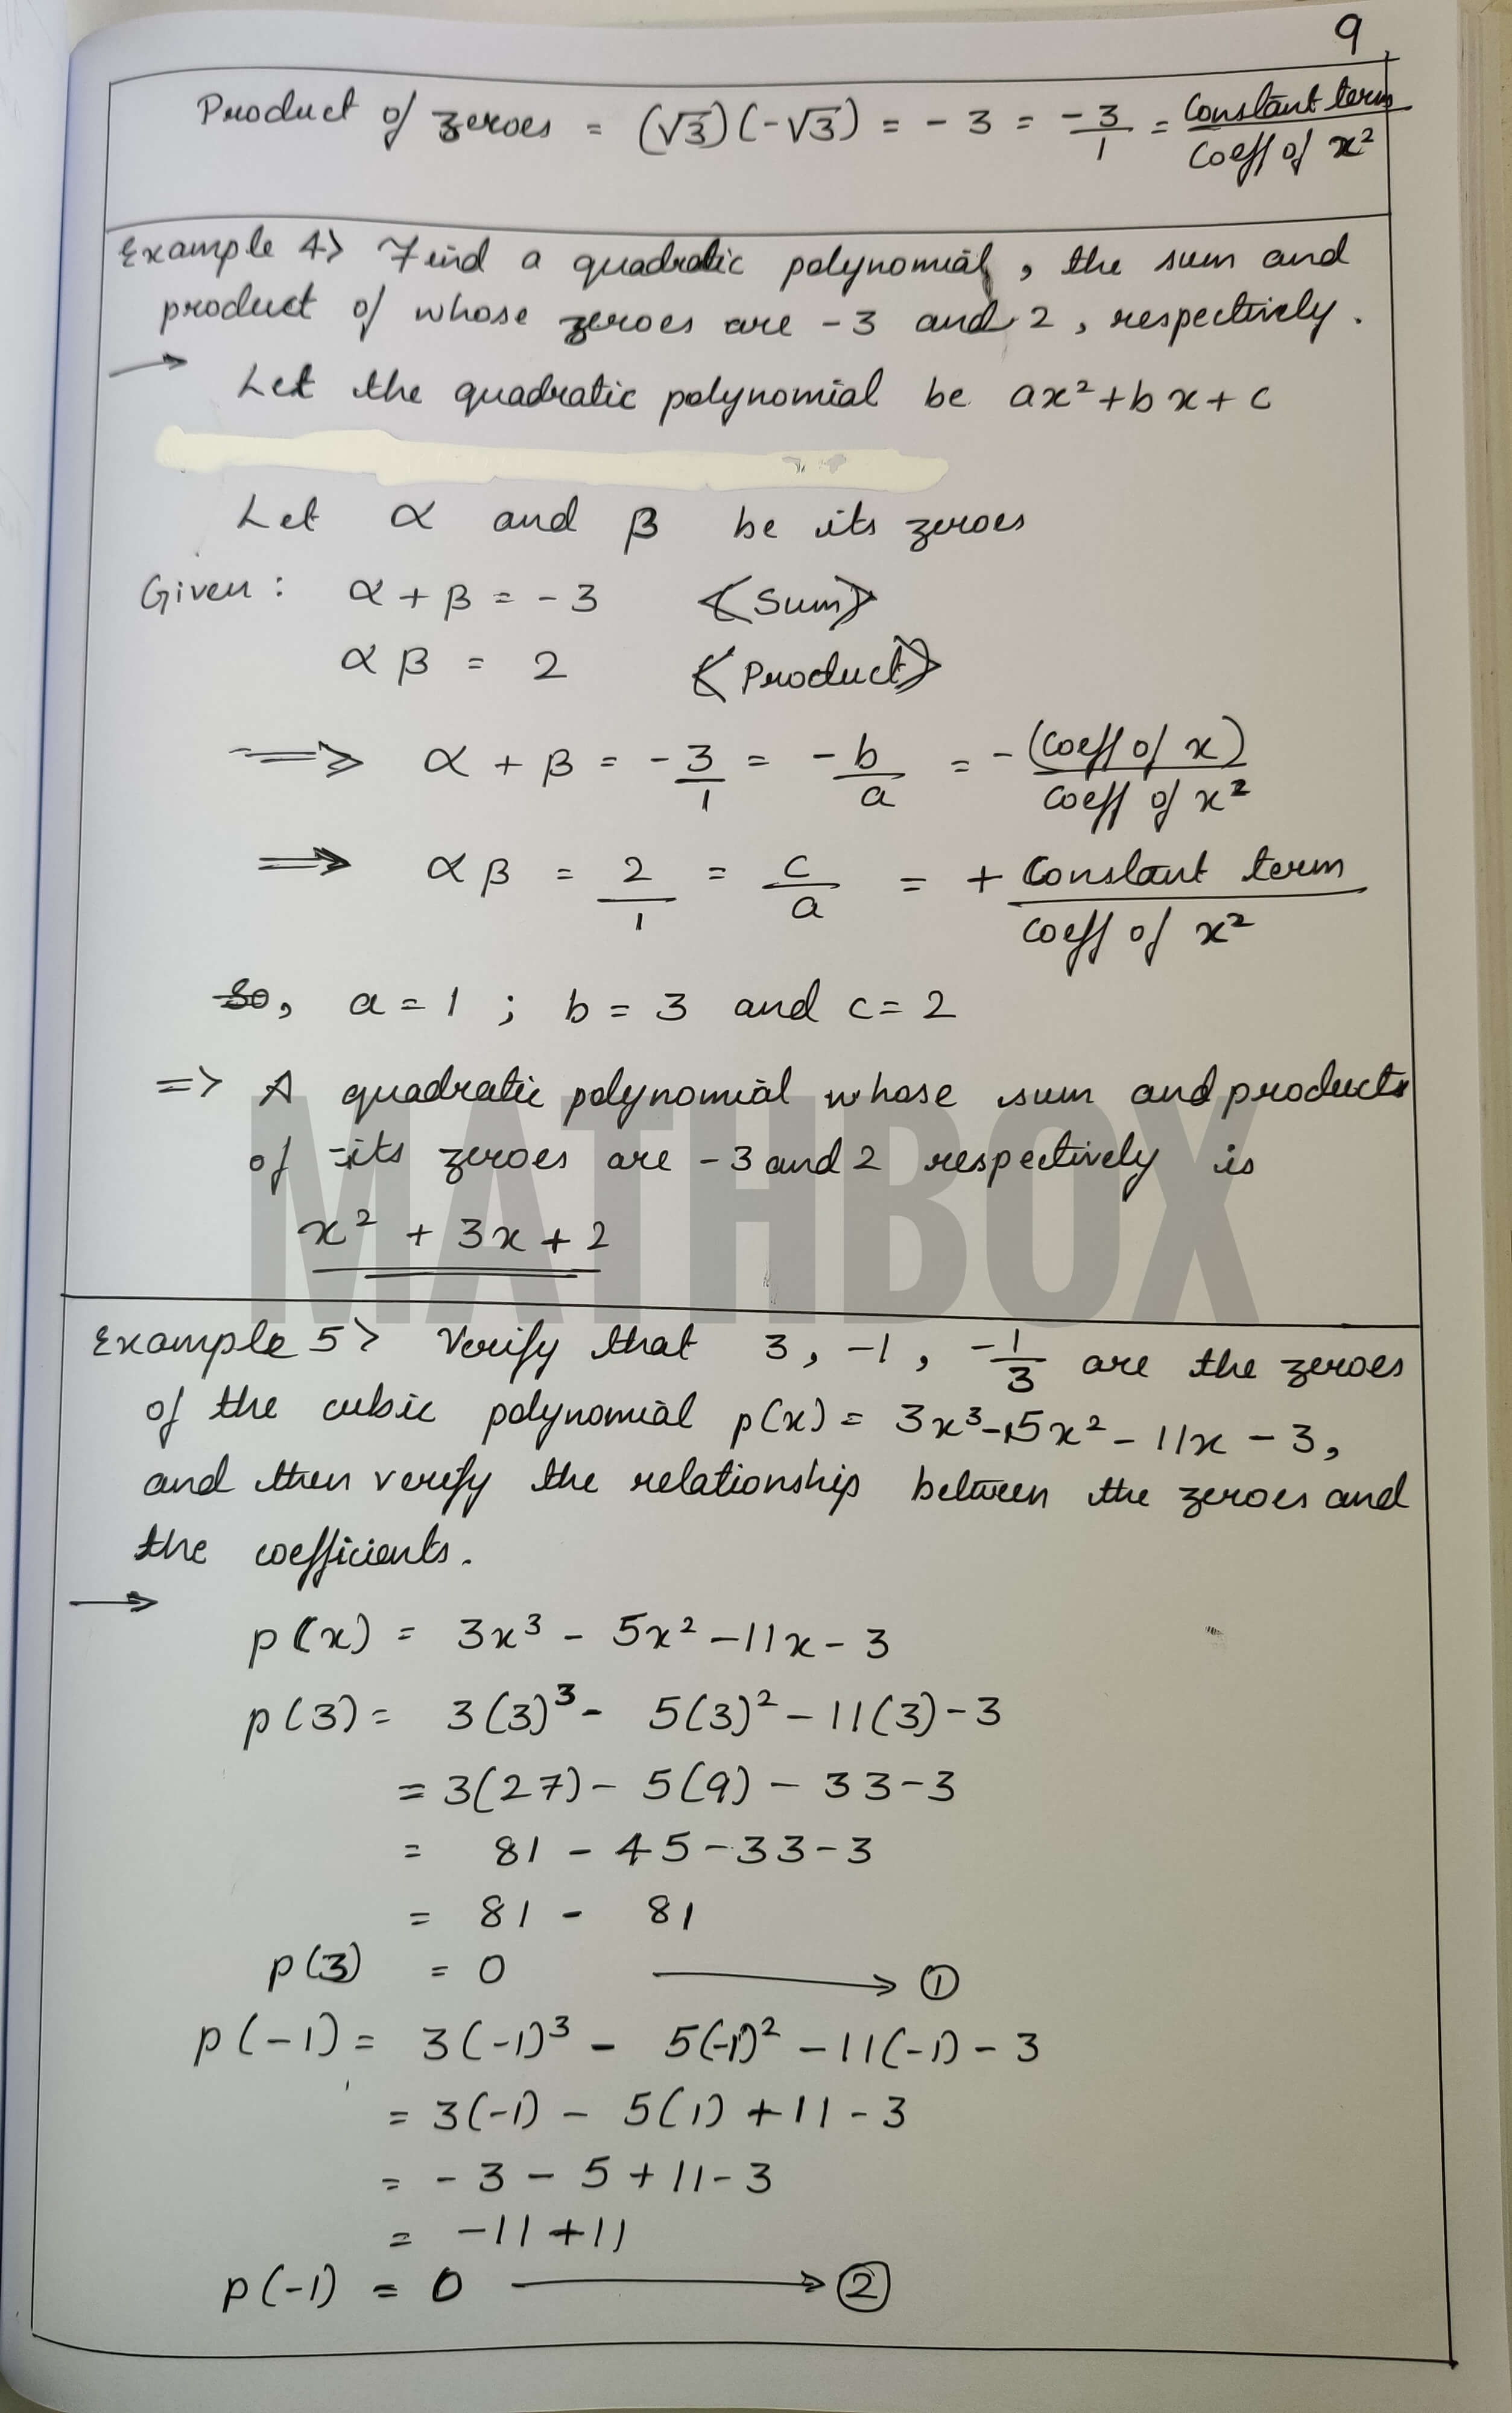 9
Product of zeroes = (√3)(-√3) = -3 = -3/1 = Constant term/Coeff of x²
Example 4> Find a quadratic polynomial, the sum and
product of whose zeroes are -3 and 2, respectively.
→ Let the quadratic polynomial be ax²+bx+c
Let α and β be its zeroes
Given: α + β = -3 <Sum>
αβ = 2 <Product>
⇒ α + β = -3/1 = -b/a = -(Coeff of x)/Coeff of x²
⇒ αβ = 2/1 = c/a = + Constant term/Coeff of x²
So, a = 1 ; b = 3 and c = 2
=> A quadratic polynomial whose sum and products
of its zeroes are -3 and 2 respectively is
x² + 3x + 2
MATHBOX
Example 5> Verify that 3, -1, -1/3 are the zeroes
of the cubic polynomial p(x) = 3x³-5x²-11x-3,
and then verify the relationship between the zeroes and
the coefficients.
→
p(x) = 3x³ - 5x² - 11x - 3
p(3) = 3(3)³ - 5(3)² - 11(3) - 3
= 3(27) - 5(9) - 33 - 3
= 81 - 45 - 33 - 3
= 81 - 81
p(3) = 0 → ①
p(-1) = 3(-1)³ - 5(-1)² - 11(-1) - 3
= 3(-1) - 5(1) + 11 - 3
= -3 - 5 + 11 - 3
= -11 + 11
p(-1) = 0 → ②